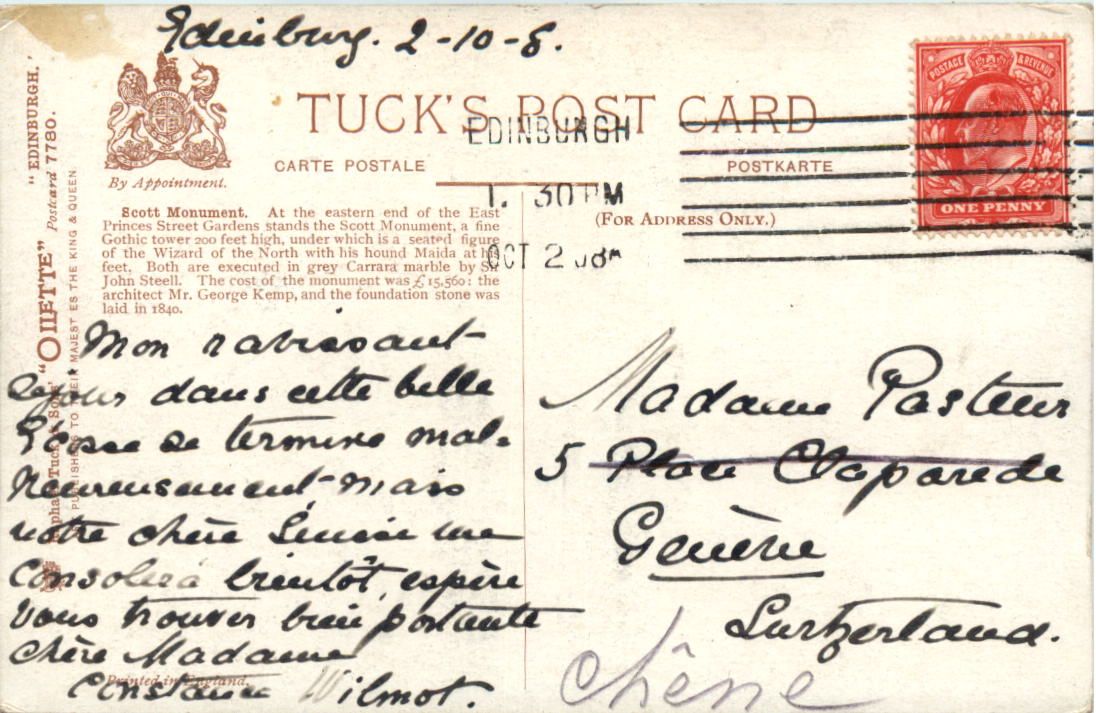 Edinburg. 2-10-8.
TUCK'S POST CARD
CARTE POSTALE
POSTKARTE
(FOR ADDRESS ONLY.)
By Appointment.
EDINBURGH
1. 30 PM
OCT 2 08
POSTAGE & REVENUE
ONE PENNY
"EDINBURGH."
"OILETTE" Postcard 7780.
Raphael Tuck & Sons'
PUBLISHERS TO THEIR MAJESTIES THE KING & QUEEN.
Scott Monument. At the eastern end of the East
Princes Street Gardens stands the Scott Monument, a fine
Gothic tower 200 feet high, under which is a seated figure
of the Wizard of the North with his hound Maida at his
feet. Both are executed in grey Carrara marble by Sir
John Steell. The cost of the monument was £15,560: the
architect Mr. George Kemp, and the foundation stone was
laid in 1840.
Mon ravissant
séjour dans cette belle
Ecosse se termine mal-
heureusement mais
notre chère Suisse me
consolera bientôt, espère
vous trouver bien portante
chère Madame
Constance Wilmot.
Printed in England.
Madame Pasteur
5 Place Claparede
Genève
Switzerland.
Chêne